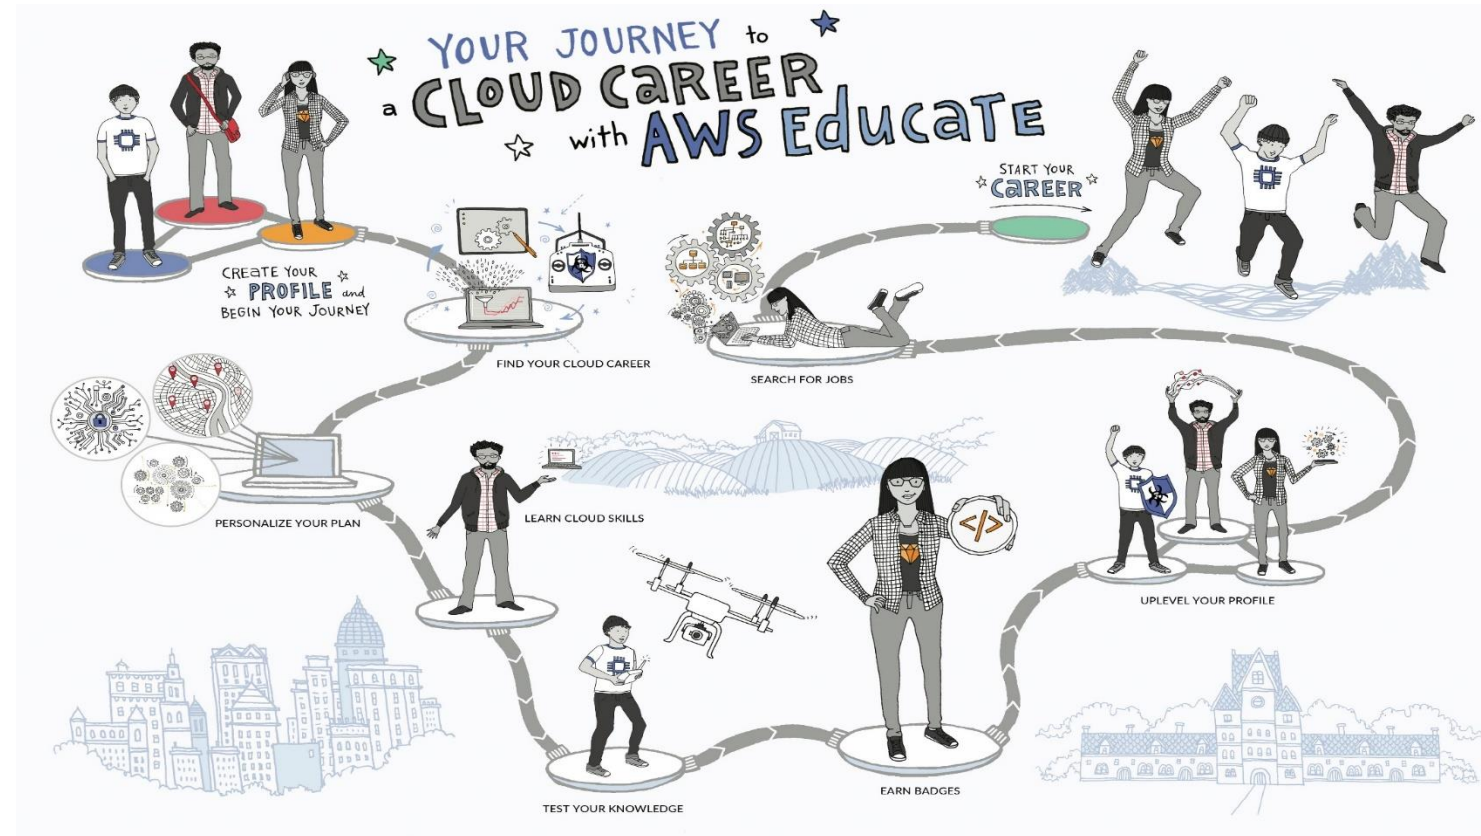 YOUR JOURNEY to
a CLOUD CaREER
with AWS EducaTE
CREaTE YOUR
PROFILE and
BEGIN YOUR JOURNEY
FIND YOUR CLOUD CAREER
PERSONALIZE YOUR PLAN
LEARN CLOUD SKILLS
TEST YOUR KNOWLEDGE
EARN BADGES
</>
UPLEVEL YOUR PROFILE
SEARCH FOR JOBS
START YOUR
CaREER